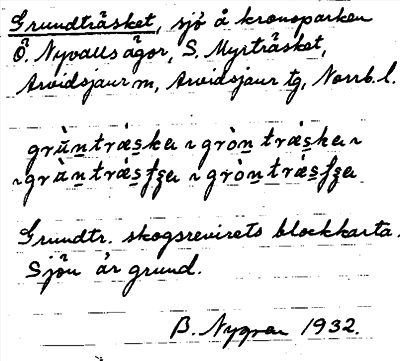 Grundträsket, sjö å kronoparken
Ö. Nyvallsågor, S. Myrträsket,
Arvidsjaur m, Arvidsjaur tg, Norrb. l.
grùn̲tràs̲ka ~ gròn̲ tràs̲ka ~
~ gràn̲tràs̲ʃʒa ~ gròn̲tràs̲ʃʒa
Grundtr. skogsrevirets blockkarta.
Sjön är grund.
B. Nygren 1932.